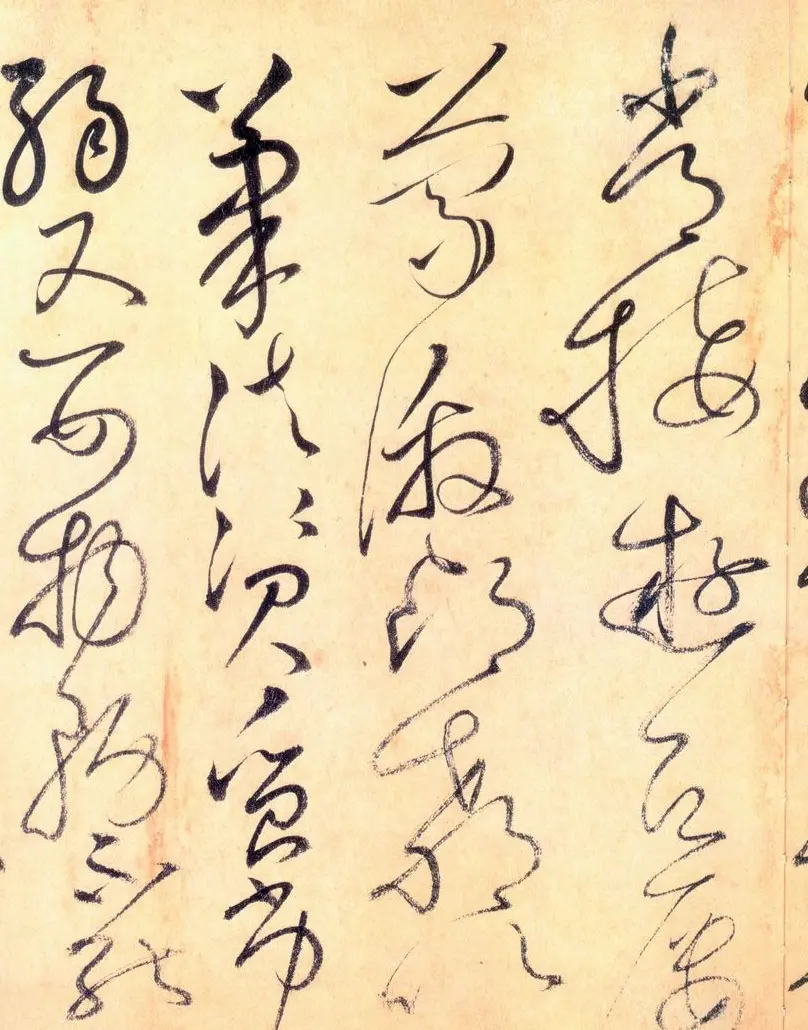 常接遊居屢
蒙激昂教以
筆法資質劣
弱又嬰物務不能